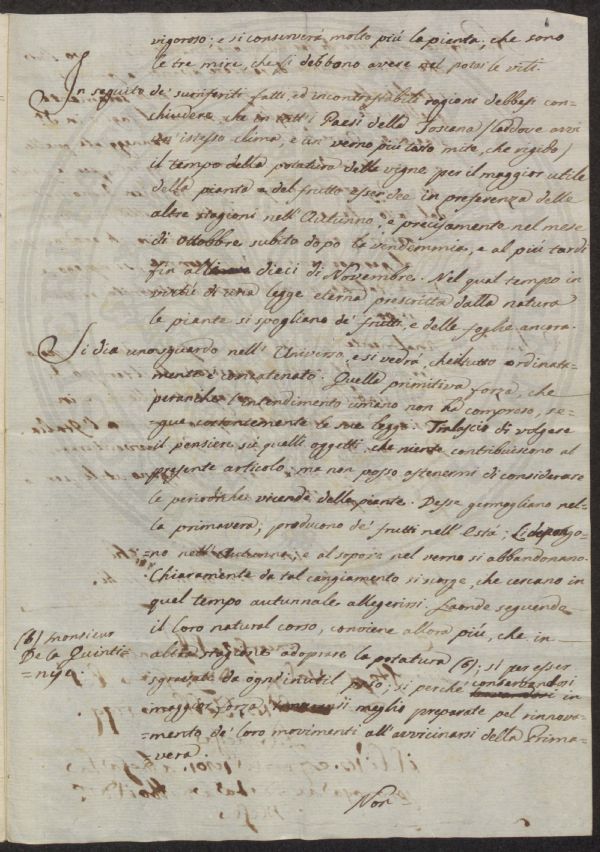 vigoroso; e si conserverà molto più la pianta; che sono
le tre mire, che si debbono avere nel potar le viti.
In seguito de' suriferiti fatti, ed incontrastabili ragioni debbesi con=
chiudere che in tutt'i Paesi della Toscana (laddove avvi
un' istesso clima, e un verno più tosto mite, che rigido)
il tempo della potatura delle vigne per il maggior utile
della pianta e del frutto esser dee in preferenza delle
altre stagioni nell'Autunno; e precisamente nel mese
di Ottobbre subito dopo la vendemmia, e al più tardi
fin alli dieci di Novembre. Nel qual tempo in
virtù di una legge eterna prescritta dalla natura
le piante si spogliano de' frutti, e delle foglie ancora.
Si dia uno sguardo nell' Universo, e si vedrà, che il tutto è ordinata=
mente concatenato. Quella primitiva forza, che
peranche l'intendimento umano non ha compreso, se=
gue costantemente le sue leggi. Tralascio di volgere
il pensiere su quelli oggetti, che niente contribuiscono al
presente articolo; ma non posso astenermi di considerare
le periodiche vicende delle piante. Desse germogliano nel=
la primavera; producono de' frutti nell'Està; Li depongo=
no nell'Autunno; e al sopore nel verno si abbandonano.
Chiaramente da tal cangiamento si scorge, che cercano in
quel tempo autunnale allegerirsi. Laonde seguendo
il loro natural corso, conviene allora più, che in
altra stagione adoprare la potatura (6); si per esser
sgravate da ogni inutil peso; si perche conservandosi in
maggior forza meglio preparate pel rinnova=
mento de' loro movimenti all'avvicinarsi della Prima=
vera.
(6) Monsieur
De la Quinti=
=nije.
Non